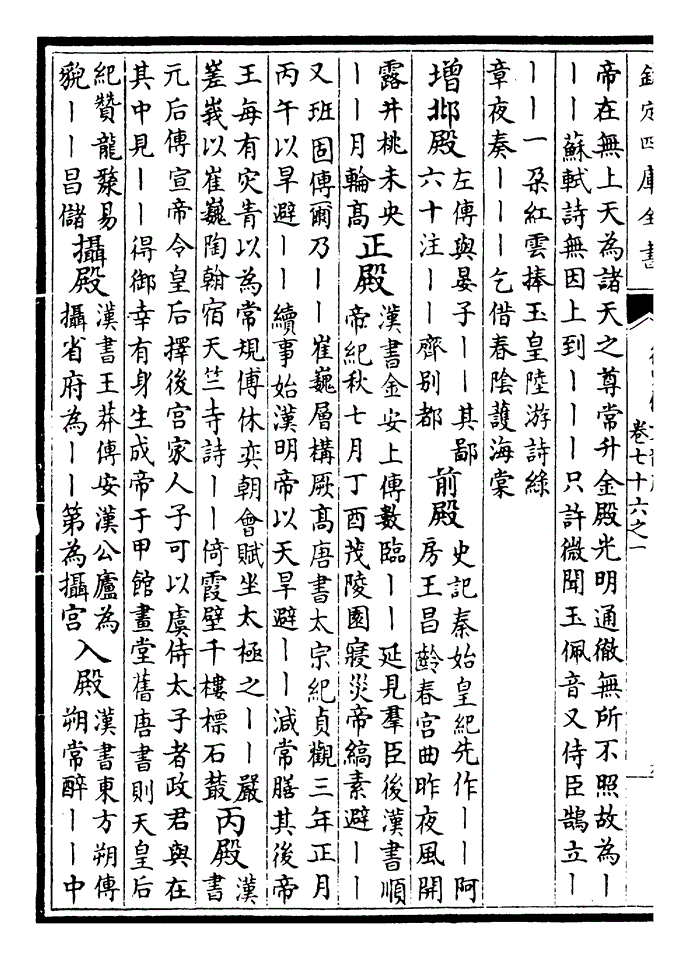 欽定四庫全書
卷七十六之一
帝在無上天為諸天之尊常升金殿光明通徹無所不照故為丨
丨丨蘇軾詩無因上到丨丨丨只許微聞玉佩音又侍臣鵠立丨
丨丨一朵紅雲捧玉皇陸游詩綠
章夜奏丨丨丨乞借春陰護海棠
增邶殿
左傳與晏子丨丨其鄙
六十注丨丨齊别都
前殿
史記秦始皇紀先作丨丨阿
房王昌齡春宫曲昨夜風開
露井桃未央
丨丨月輪髙
正殿
漢書金安上傳數臨丨丨延見羣臣後漢書順
帝紀秋七月丁酉茂陵園寢災帝縞素避丨丨
又班固傳爾乃丨丨崔巍層構厥髙唐書太宗紀貞觀三年正月
丙午以旱避丨丨續事始漢明帝以天旱避丨丨減常膳其後帝
王每有灾眚以為常規傅休奕朝會賦坐太極之丨丨嚴
嵳峩以崔巍陶翰宿天竺寺詩丨丨倚霞壁千樓標石叢
丙殿
漢
書
元后傳宣帝令皇后擇後宫家人子可以虞侍太子者政君與在
其中見丨丨得御幸有身生成帝于甲館畫堂舊唐書則天皇后
紀贊龍漦易
貌丨丨昌儲
攝殿
漢書王莽傳安漢公廬為
攝省府為丨丨第為攝宫
入殿
漢書東方朔傳
朔常醉丨丨中